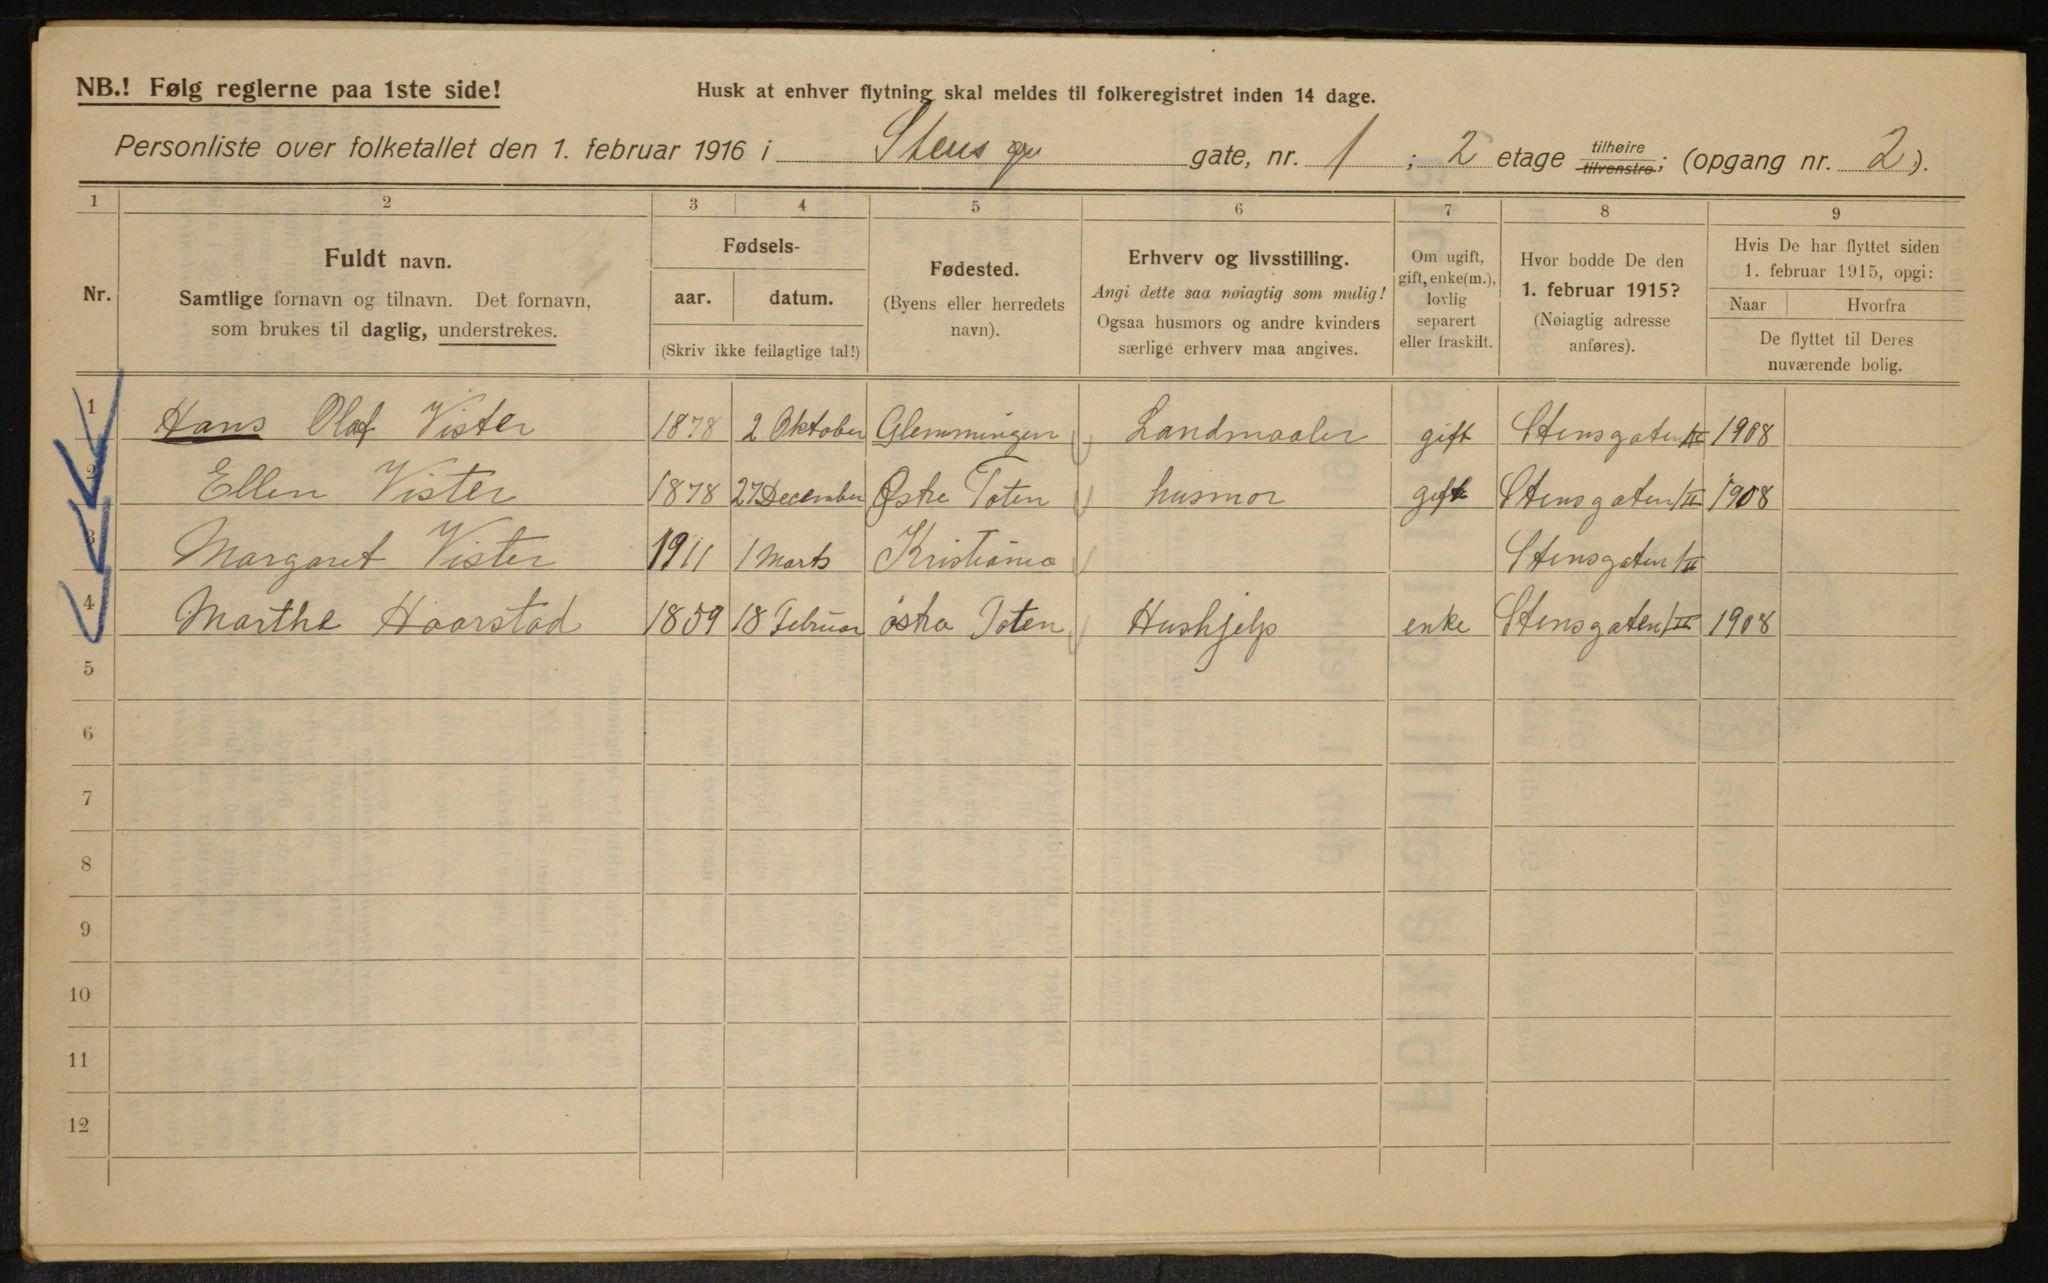 NB.! Følg reglerne paa 1ste side!
Husk at enhver flytning skal meldes til folkeregistret inden 14 dage.
Personliste over folketallet den 1. februar 1916 i Stens gate, nr. 1; 2 etage tilhøire tilvenstre; (opgang nr. 2).
1 2 3 4 5 6 7 8 9
Nr.
Fuldt navn.
Samtlige fornavn og tilnavn. Det fornavn,
som brukes til daglig, understrekes.
Fødsels-
aar. datum.
(Skriv ikke feilagtige tal!)
Fødested.
(Byens eller herredets
navn).
Erhverv og livsstilling.
Angi dette saa nøiagtig som mulig!
Ogsaa husmors og andre kvinders
særlige erhverv maa angives.
Om ugift,
gift, enke(m.),
lovlig
separert
eller fraskilt.
Hvor bodde De den
1. februar 1915?
(Nøiagtig adresse
anføres).
Hvis De har flyttet siden
1. februar 1915, opgi:
Naar Hvorfra
De flyttet til Deres
nuværende bolig.
1 Hans Olaf Vister 1878 2 Oktober Glemmingen Landmaaler gift Stensgaten 1 II 1908
2 Ellen Vister 1878 27 December Østre Toten husmor gift Stensgaten 1 II 1908
3 Margaret Vister 1911 1 Marts Kristiania Stensgaten 1 II
4 Marthe Haarstad 1859 18 Februar østre Toten Hushjelp enke Stensgaten 1 II 1908
5
6
7
8
9
10
11
12